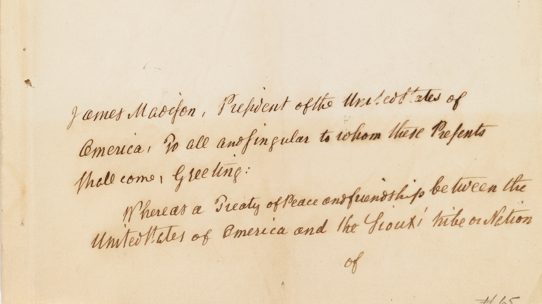 James Madison, President of the United States of
America, To all and singular to whom these Presents
shall come, Greeting:
Whereas a Treaty of Peace and friendship between the
United States of America and the Sioux tribe or Nation
of